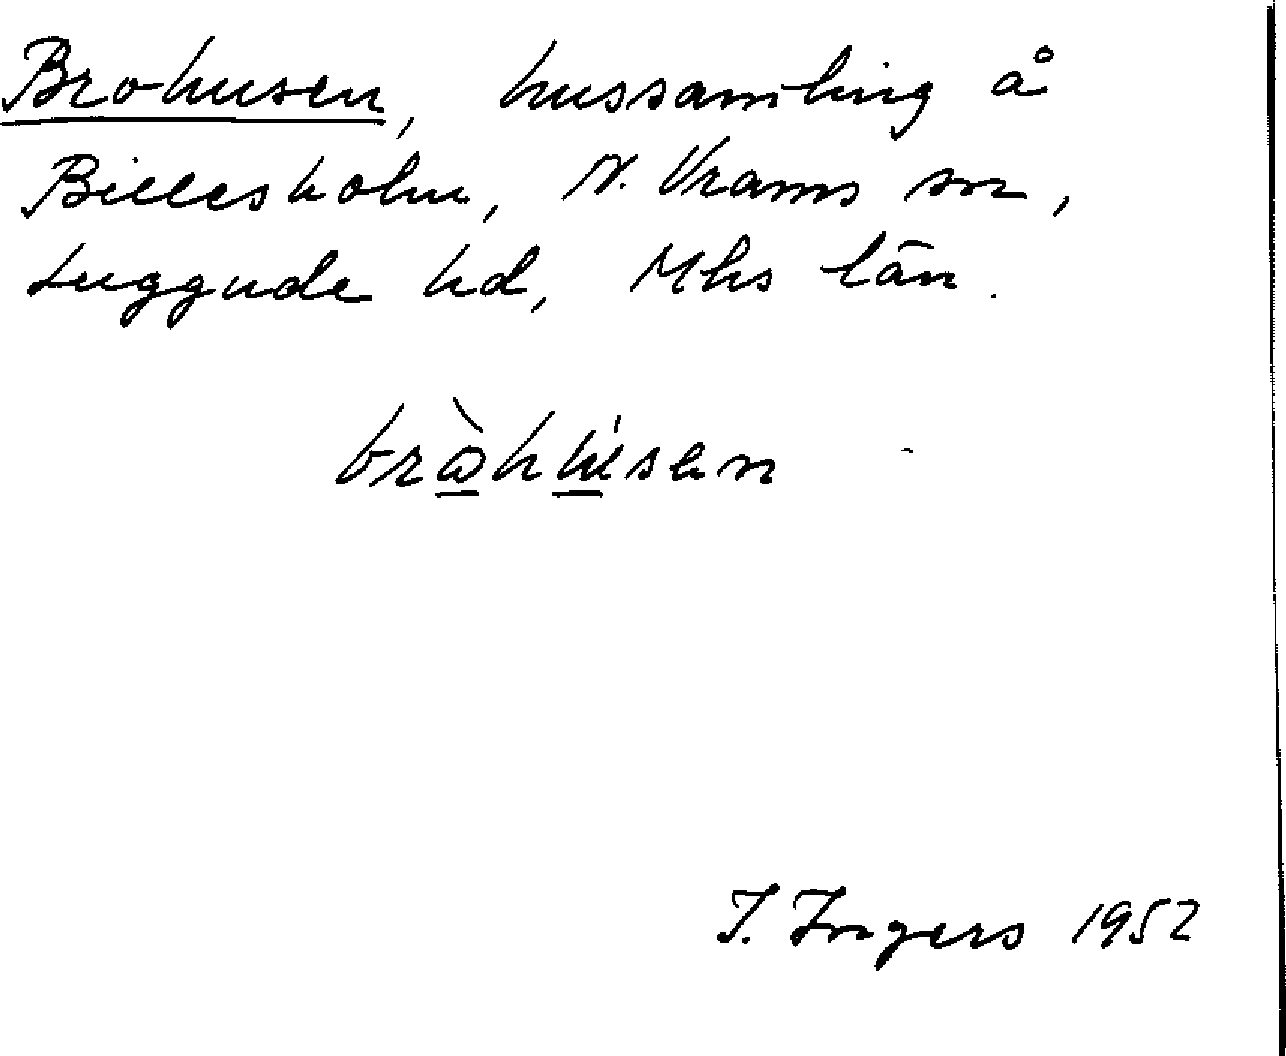 Brohusen, hussamling å
Billesholm, N. Vrams sn,
Luggude hd, Mhs län.
I. Ingers 1952